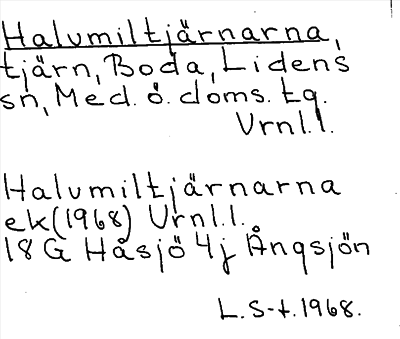 Halvmiltjärnarna,
tjärn, Boda, Lidens
sn, Med. ö. doms. tg.
Vrnl.l.
Halvmiltjärnarna
ek(1968) Vrnl.l.
18 G Håsjö 4j Ångsjön
L. S-t. 1968.